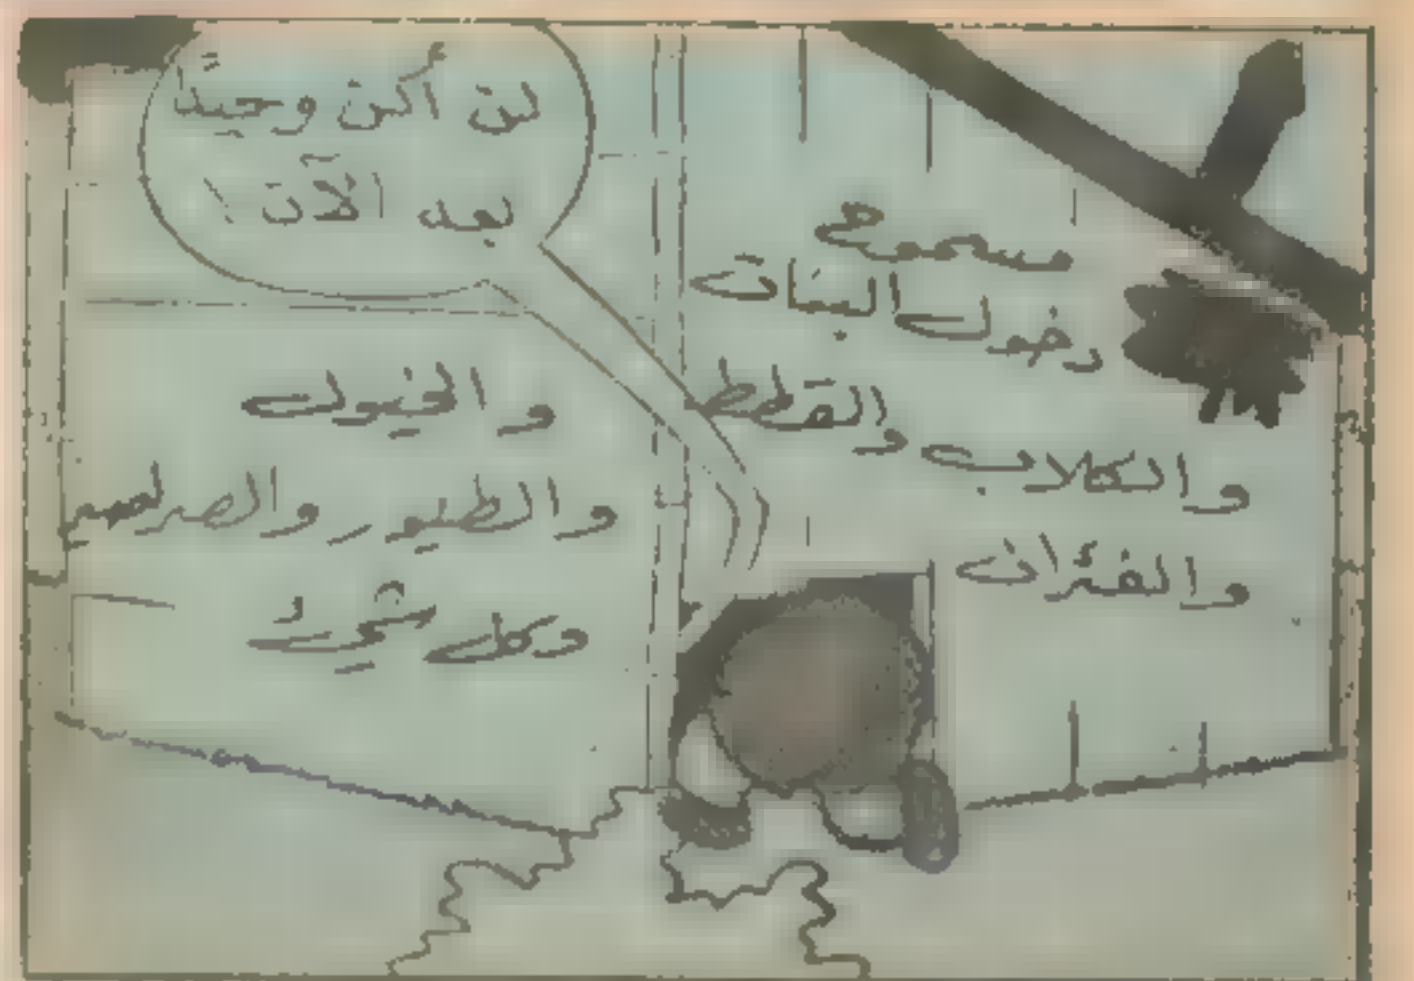 لن أكن وحيداً
بعد الآن !
مسموح
دخول البنات
والكلاب والقطط
والفئران
والخيول
والطيور والصراصير
وكل شيء